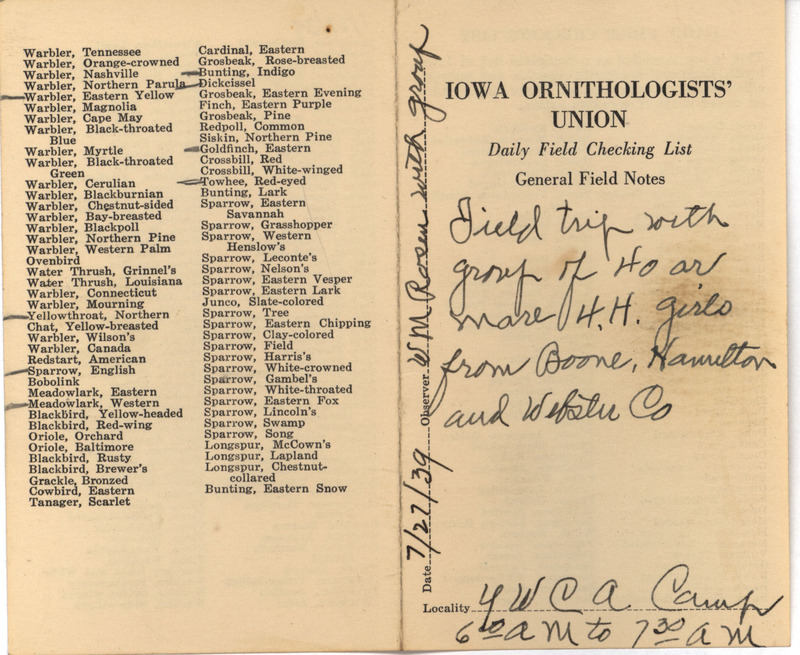 Warbler, Tennessee
Warbler, Orange-crowned
Warbler, Nashville
Warbler, Northern Parula
Warbler, Eastern Yellow
Warbler, Magnolia
Warbler, Cape May
Warbler, Black-throated
Blue
Warbler, Myrtle
Warbler, Black-throated
Green
Warbler, Cerulian
Warbler, Blackburnian
Warbler, Chestnut-sided
Warbler, Bay-breasted
Warbler, Blackpoll
Warbler, Northern Pine
Warbler, Western Palm
Ovenbird
Water Thrush, Grinnel's
Water Thrush, Louisiana
Warbler, Connecticut
Warbler, Mourning
Yellowthroat, Northern
Chat, Yellow-breasted
Warbler, Wilson's
Warbler, Canada
Redstart, American
Sparrow, English
Bobolink
Meadowlark, Eastern
Meadowlark, Western
Blackbird, Yellow-headed
Blackbird, Red-wing
Oriole, Orchard
Oriole, Baltimore
Blackbird, Rusty
Blackbird, Brewer's
Grackle, Bronzed
Cowbird, Eastern
Tanager, Scarlet
Cardinal, Eastern
Grosbeak, Rose-breasted
Bunting, Indigo
Dickcissel
Grosbeak, Eastern Evening
Finch, Eastern Purple
Grosbeak, Pine
Redpoll, Common
Siskin, Northern Pine
Goldfinch, Eastern
Crossbill, Red
Crossbill, White-winged
Towhee, Red-eyed
Bunting, Lark
Sparrow, Eastern
Savannah
Sparrow, Grasshopper
Sparrow, Western
Henslow's
Sparrow, Leconte's
Sparrow, Nelson's
Sparrow, Eastern Vesper
Sparrow, Eastern Lark
Junco, Slate-colored
Sparrow, Tree
Sparrow, Eastern Chipping
Sparrow, Clay-colored
Sparrow, Field
Sparrow, Harris's
Sparrow, White-crowned
Sparrow, Gambel's
Sparrow, White-throated
Sparrow, Eastern Fox
Sparrow, Lincoln's
Sparrow, Swamp
Sparrow, Song
Longspur, McCown's
Longspur, Lapland
Longspur, Chestnut-
collared
Bunting, Eastern Snow
Date 7/27/39 Observer W M Rosen with group
IOWA ORNITHOLOGISTS'
UNION
Daily Field Checking List
General Field Notes
Field trip with
group of 40 or
more 4.H. girls
from Boone, Hamilton
and Webster Co
Locality Y W C A Camp
6 00 A M to 7 30 A M